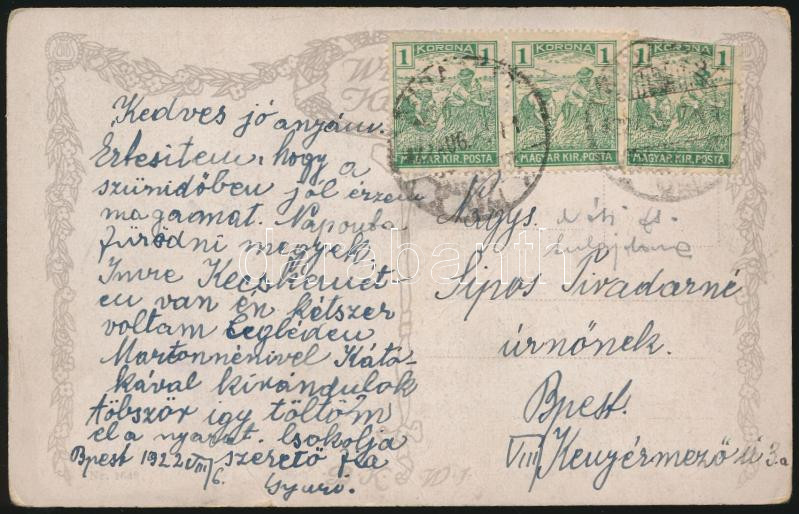 1 KORONA 1
MAGYAR KIR. POSTA
1 KORONA 1
MAGYAR KIR. POSTA
1 KORONA 1
MAGYAR KIR. POSTA
Kedves jó anyám.
Ertesitem, hogy a
szünidőben jól érzem
magamat. Naponta
fürödni megyek
Imre Kecskemét-
en van én kétszer
voltam Cegléden
Martonnénivel Kató-
kával kirándulok
többször igy töltöm
el a nyarat. Csókolja
Bpest 1922 VIII/6. szerető fia
Gyuró.
Nagys.
Sipos Tivadarné
úrnőnek.
Bpest.
VIII Kenyérmező ú 3.a
darabanth.com
W. J.